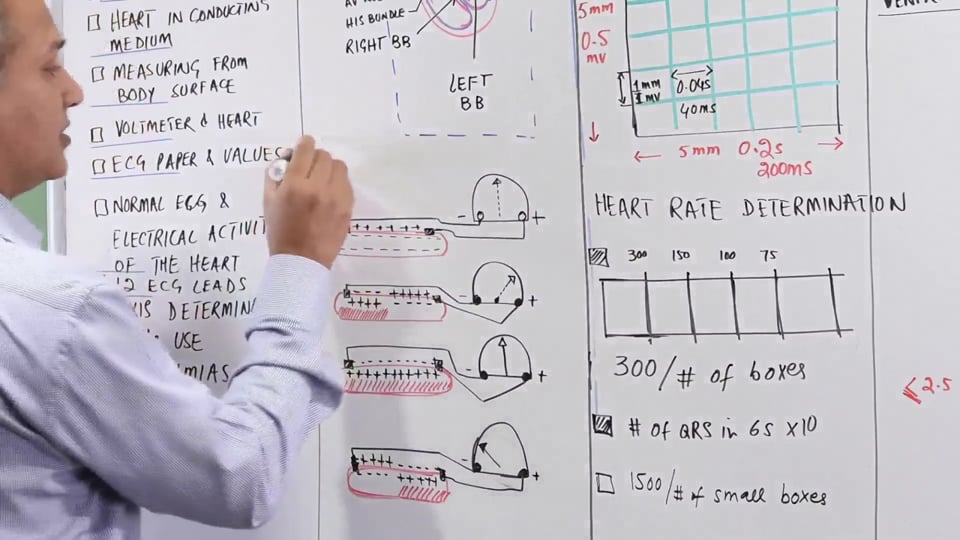 HEART IN CONDUCTING
MEDIUM
MEASURING FROM
BODY SURFACE
VOLTMETER & HEART
ECG PAPER & VALUES
NORMAL ECG &
ELECTRICAL ACTIVIT
OF THE HEART
12 ECG LEADS
XIS DETERMIN
USE
MIAS
HIS BUNDLE
RIGHT BB
LEFT
BB
- +
+ + + + + +
- +
- - - - + + + + +
+ + + +
- +
+ + + + + + + + + +
- +
+ + + + +
+ + + + +
5mm
0.5
mv
1mm
0.04s
40ms
5mm 0.2s
200ms
HEART RATE DETERMINATION
300 150 100 75
300/# of boxes
# of QRS in 6s x10
1500/# of small boxes
<2.5